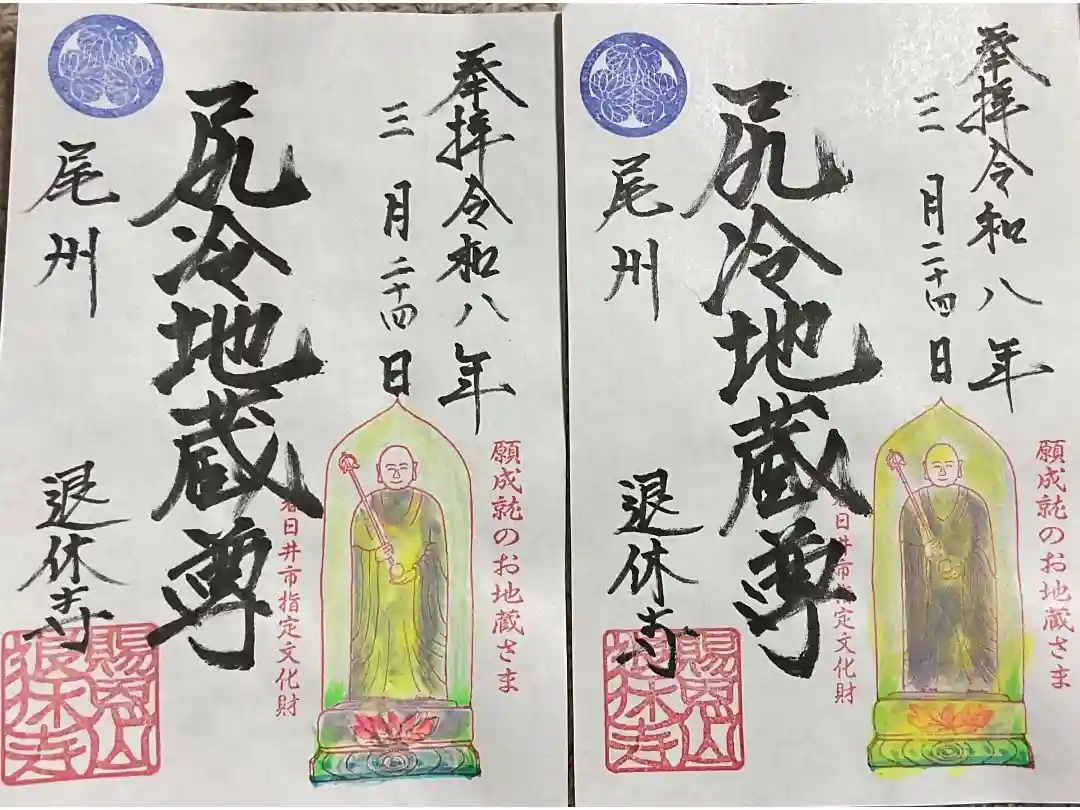 奉拝令和八年
三月二十四日
尻冷地蔵尊
尾州
退休寺
願成就のお地蔵さま
春日井市指定文化財
賜恩山
退休寺
奉拝令和八年
三月二十四日
尻冷地蔵尊
尾州
退休寺
願成就のお地蔵さま
春日井市指定文化財
賜恩山
退休寺